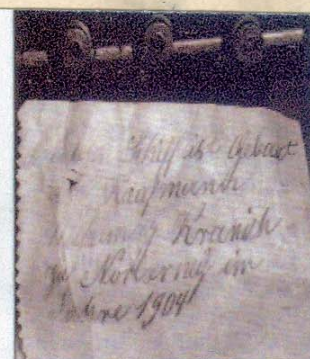 Schiff ist Gebaut
Kaufmann
Kranich
zu Norderney im
Jahre 1904